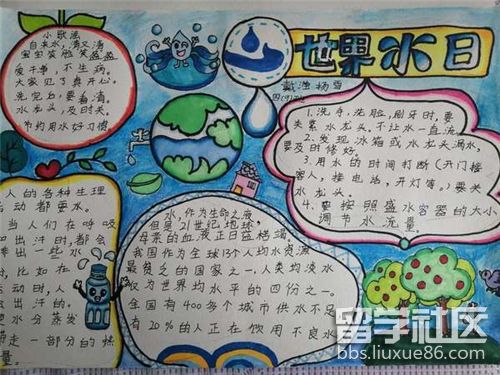 世界水日
戴浊 杨雪
小歌谣
自来水,清又清
爱干净,不生病。
大家记了真开心。
洗完白,要看清。
水龙头,及时关。
节约用水好习惯
1.洗手,洗脸,刷牙时,要
关紧水龙头。不让水一直流。
2.发现冰箱或水龙头漏水,
要及时修好。
3.用水的时间打断(开门接
客人,接电话,开灯等。)要关
水龙头。
4.要按照盛水容器的大小
调节水流量。
人的各种生理
活动都要水。
当人们在呼吸
和出汗时都会
排出一些水
比如在
运动时,人
会出汗的。
水分蒸发
带走一部分的热
量。
水,作为生命之液
但是21世纪地球
母亲的血液正日益枯竭
我国作为全球13个人均水资源
最贫乏的国家之一,人类均淡水
仅为世界均水平的四份之一,
全国有400多个城市供水不足
有20%的人正在饮用不良水
留学社区
bbs.liuxue86.com